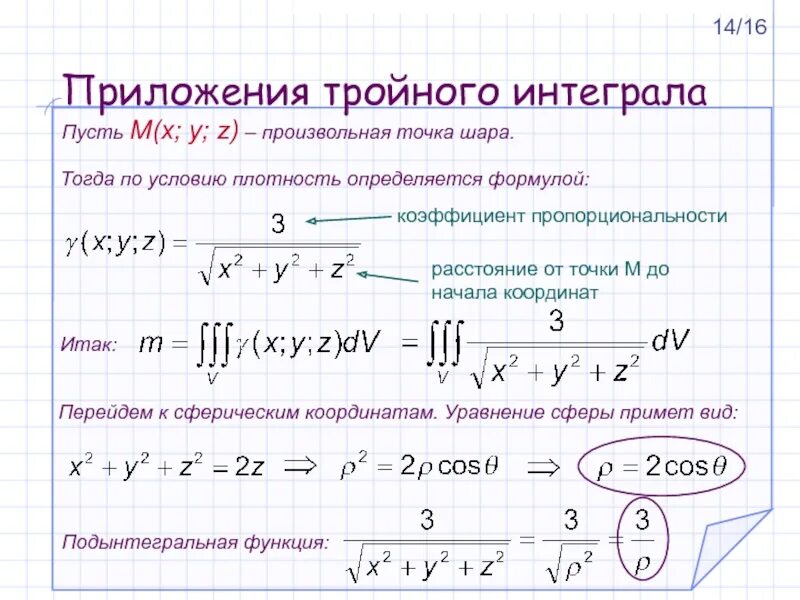 14/16
Приложения тройного интеграла
Пусть M(x; y; z) – произвольная точка шара.
Тогда по условию плотность определяется формулой:
γ(x;y;z) = 3/√(x² + y² + z²)
коэффициент пропорциональности
расстояние от точки М до
начала координат
Итак: m = ∭_V γ(x;y;z)dV = ∭_V 3/√(x² + y² + z²) dV
Перейдем к сферическим координатам. Уравнение сферы примет вид:
x² + y² + z² = 2z ⇒ ρ² = 2ρ cos θ ⇒ ρ = 2cos θ
Подынтегральная функция: 3/√(x² + y² + z²) = 3/√ρ² = 3/ρ